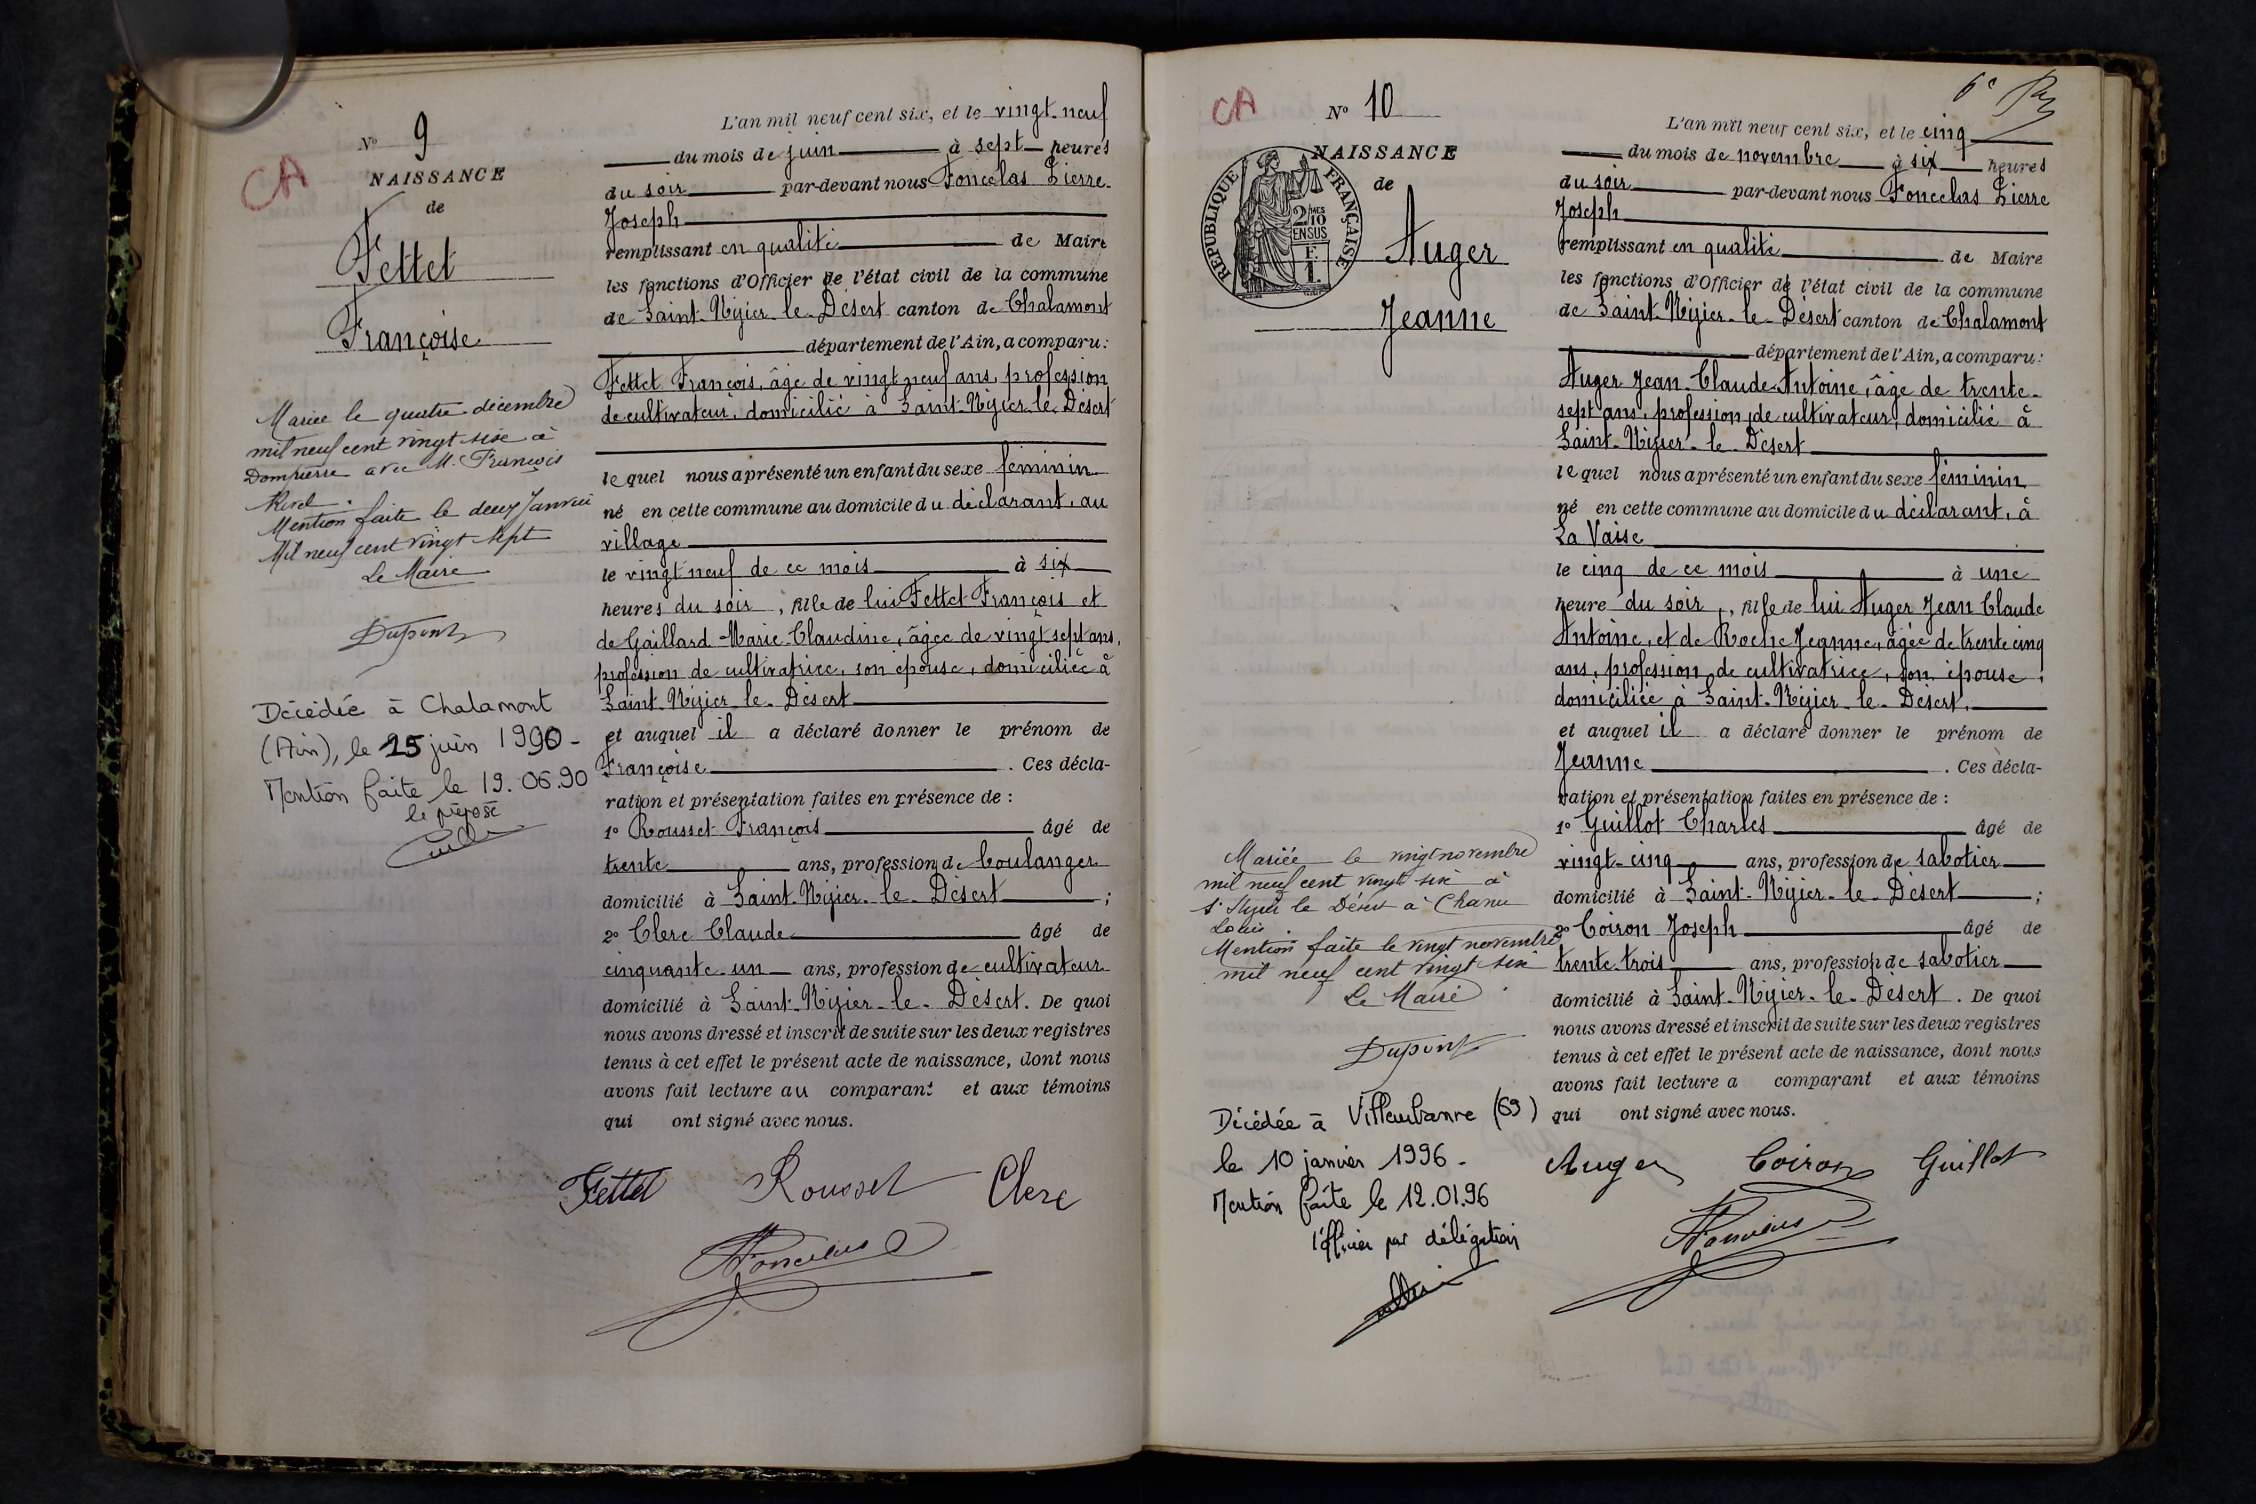 CA
N° 9
NAISSANCE
de
Fettet
Françoise
Mariée le quatre décembre
mil neuf cent vingt six à
Dompierre avec M. François
Mention faite le deux Janvier
Mil neuf cent vingt sept
Le Maire
Dupont
Décédée à Chalamont
(Ain), le 15 juin 1990 -
Mention faite le 19.06.90
le préposé
L'an mil neuf cent six, et le vingt-neuf
du mois de juin à sept heures
du soir par-devant nous Foncelas Pierre-
Joseph
remplissant en qualité de Maire
les fonctions d'Officier de l'état civil de la commune
de Saint-Nizier-le-Désert canton de Chalamont
département de l'Ain, a comparu :
Fettet François, âgé de vingt neuf ans, profession
de cultivateur, domicilié à Saint-Nizier-le-Désert
lequel nous a présenté un enfant du sexe féminin
né en cette commune au domicile du déclarant, au
village
le vingt neuf de ce mois à six
heures du soir, fille de lui Fettet François et
de Gaillard Marie Claudine, âgée de vingt sept ans,
profession de cultivatrice, son épouse, domiciliée à
Saint-Nizier-le-Désert
et auquel il a déclaré donner le prénom de
Françoise. Ces décla-
ration et présentation faites en présence de :
1° Rousset François âgé de
trente ans, profession de boulanger
domicilié à Saint-Nizier-le-Désert ;
2° Clerc Claude âgé de
cinquante-un ans, profession de cultivateur
domicilié à Saint-Nizier-le-Désert. De quoi
nous avons dressé et inscrit de suite sur les deux registres
tenus à cet effet le présent acte de naissance, dont nous
avons fait lecture au comparant et aux témoins
qui ont signé avec nous.
Fettet Rousset Clerc
Foncelas
CA
N° 10
6e
NAISSANCE
de
RÉPUBLIQUE FRANÇAISE
2/10 EN SUS
Auger
Jeanne
Mariée le vingt novembre
mil neuf cent vingt six à
St Nizier le Désert à Chanu
Louis
Mention faite le vingt novembre
mil neuf cent vingt six
Le Maire
Dupont
Décédée à Villeurbanne (69)
le 10 janvier 1996 -
Mention faite le 12.01.96
l'officier par délégation
L'an mil neuf cent six, et le cinq
du mois de novembre à six heures
du soir par-devant nous Foncelas Pierre
Joseph
remplissant en qualité de Maire
les fonctions d'Officier de l'état civil de la commune
de Saint-Nizier-le-Désert canton de Chalamont
département de l'Ain, a comparu :
Auger Jean-Claude-Antoine, âgé de trente-
sept ans, profession de cultivateur, domicilié à
Saint-Nizier-le-Désert
lequel nous a présenté un enfant du sexe féminin
né en cette commune au domicile du déclarant, à
La Vaise
le cinq de ce mois à une
heure du soir, fille de lui Auger Jean Claude
Antoine, et de Roche Jeanne, âgée de trente cinq
ans, profession de cultivatrice, son épouse,
domiciliée à Saint-Nizier-le-Désert,
et auquel il a déclaré donner le prénom de
Jeanne. Ces décla-
ration et présentation faites en présence de :
1° Guillot Charles âgé de
vingt-cinq ans, profession de sabotier
domicilié à Saint-Nizier-le-Désert ;
2° Coiron Joseph âgé de
trente-trois ans, profession de sabotier
domicilié à Saint-Nizier-le-Désert. De quoi
nous avons dressé et inscrit de suite sur les deux registres
tenus à cet effet le présent acte de naissance, dont nous
avons fait lecture a comparant et aux témoins
qui ont signé avec nous.
Auger Coiron Guillot
Foncelas